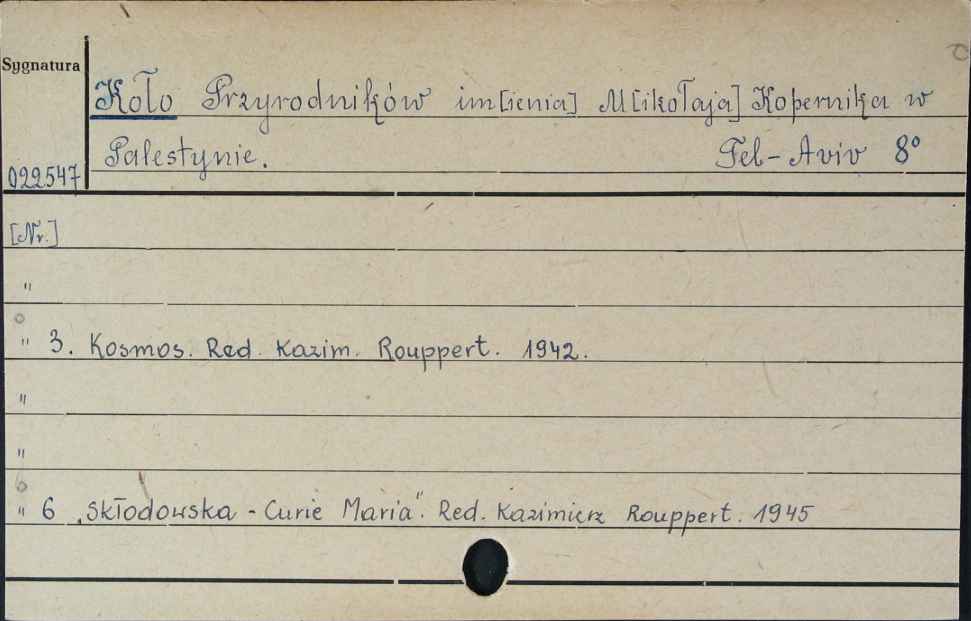 Sygnatura
Koło Przyrodników im[ienia] M[ikołaja] Kopernika w
Palestynie. Tel-Aviv 8°
022547
[Nr.]
"
" 3. Kosmos. Red. Kazim. Rouppert. 1942.
"
"
" 6 „Skłodowska - Curie Maria". Red. Kazimierz Rouppert. 1945